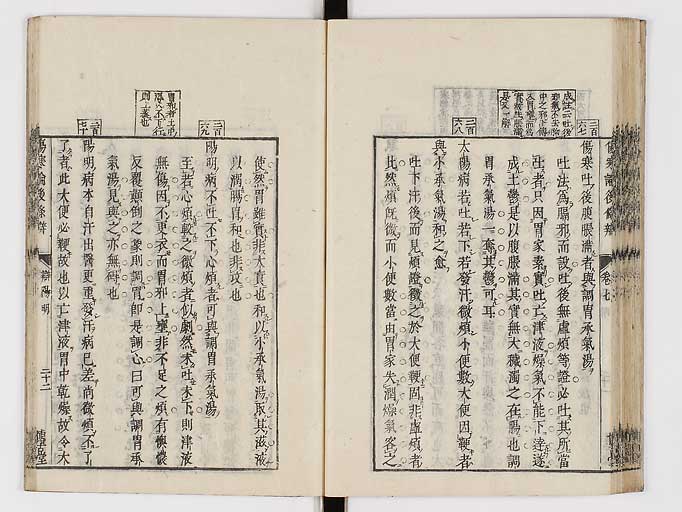 傷寒論後條辨
卷七
二百六七
傷寒吐後腹脹滿者與調胃承氣湯
吐法爲膈邪而設吐後無虛煩等證必吐其所當
吐者只因胃家素實吐亡津液燥氣不能下達遂
成土鬱是以腹脹滿其實無大穢濁之在腸也調
胃承氣湯一奪其鬱可耳
二百六八
太陽病若吐若下若發汗微煩小便數大便因鞕者
與小承氣湯和之愈
吐下汗後而見煩證徵之於大便鞕固非虛煩者
比然煩旣微而小便數當由胃家失潤燥氣客之
使然胃雖實非大實也和以小承氣湯取其滋液
以潤腸胃和也非攻也
二百六九
陽明病不吐不下心煩者可與調胃承氣湯
王若心煩較之微煩者似劇然未吐未下則津液
無傷因不更衣而胃邪上壅非不足之煩有懊憹
反覆顚倒之象則調胃卽是調心曰可與調胃承
氣湯見與之亦無碍也
二百七十
陽明病本自汗出醫更重發汗病已差尚微煩不了
了者此大便必鞕故也以亡津液胃中乾燥故令大
傷寒論後條辨
辨陽明
二十二